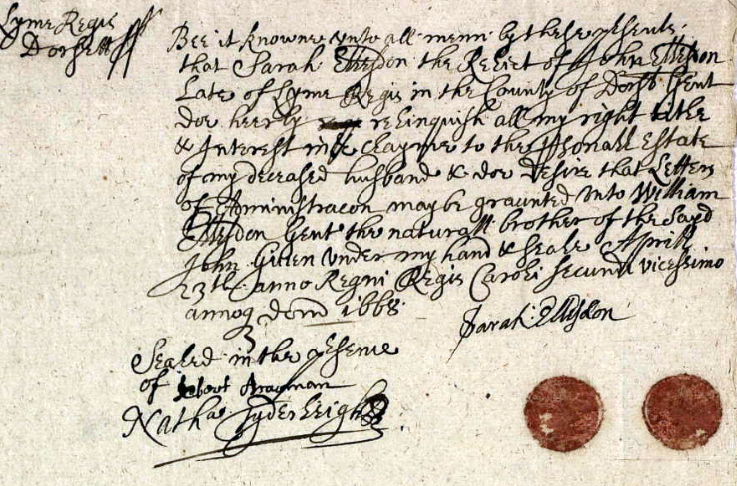 Lyme Regis
Dorsett
Bee it knowne unto all menn by these psents
that Sarah Ellesdon the Relict of John Ellesdon
Late of Lyme Regis in the County of Dorst Gent
doe heerby relinquish all my right title
& Interest in & clayme to the psonall Estate
of my deceased husband & doe desire that Letters
of Administracon may be graunted unto William
Ellesdon Gent the naturall brother of the sayd
John Given under my hand & seale Aprill
23th anno Regni Regis Caroli secundi vicessimo
annoq dom 1668
Sarah Ellesdon
Sealed in the psence
of
Natha